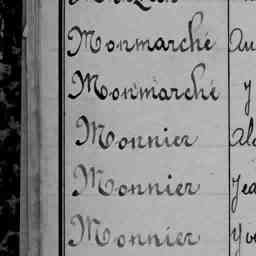 Monmarché Au
Monmarché y
Monnier Al
Monnier Jea
Monnier Yv